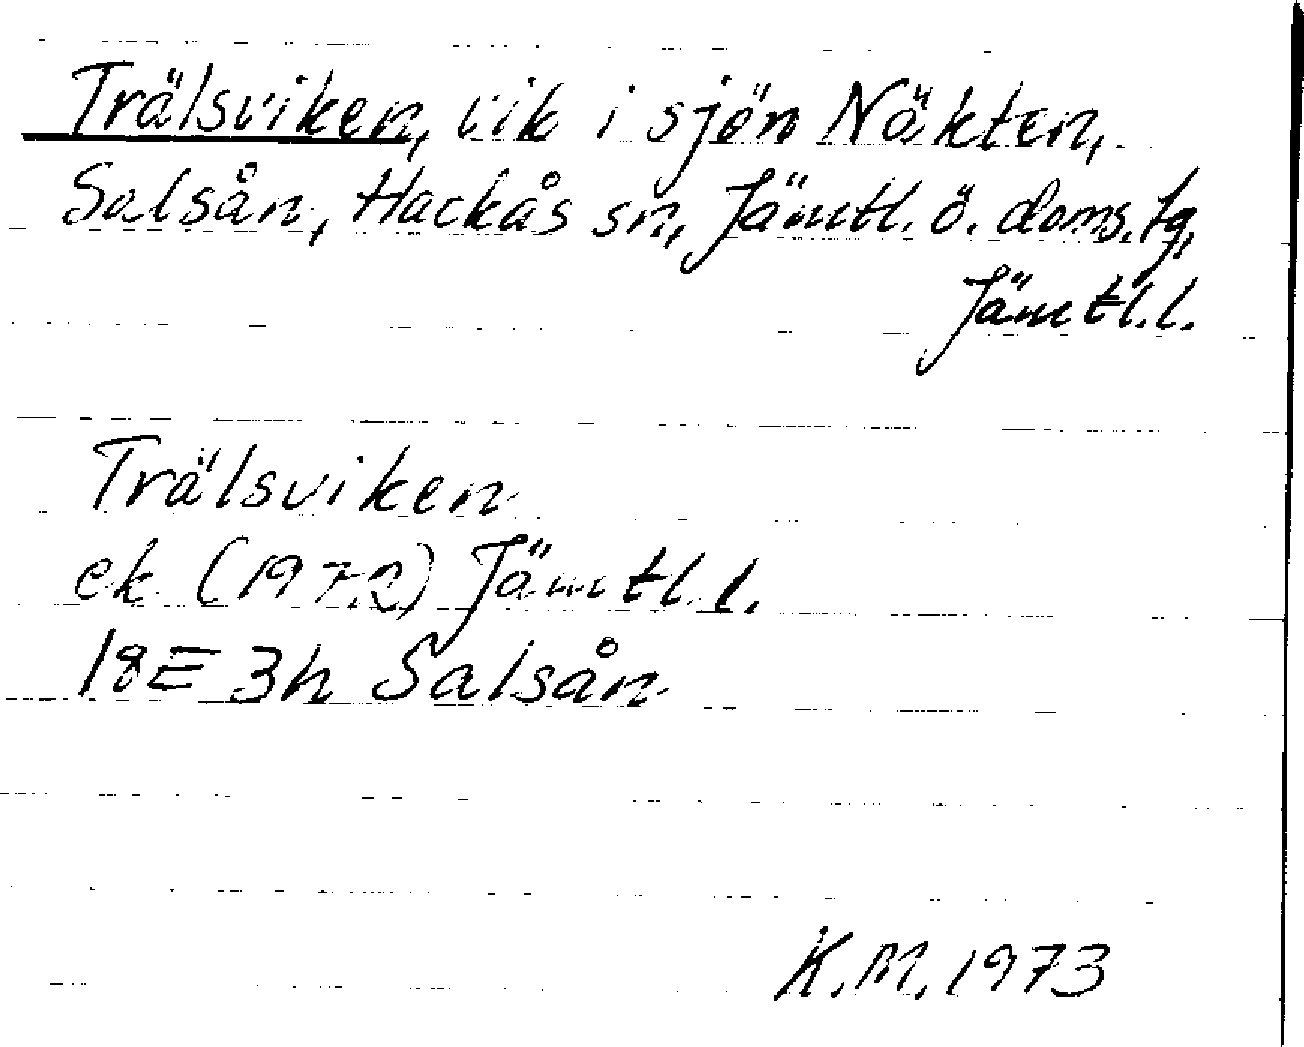 Trälsviken, vik i sjön Näkten,
Salsån, Hackås sn, Jämtl. ö. doms. tg,
Jämtl. l.
Trälsviken
ek (1972) Jämtl. l.
18E 3h Salsån
K.M. 1973